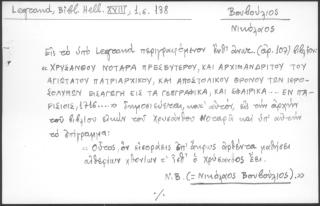 Legrand, Bibl. Hell. XVIII, 1, σ. 138
Βουβούλιος
Νικόλαος
Εἰς τὸ ὑπὸ Legrand περιγραφόμενον (ἀρ. 107) βιβλίον:
« ΧΡΥΣΑΝΘΟΥ ΝΟΤΑΡΑ ΠΡΕΣΒΥΤΕΡΟΥ, ΚΑΙ ΑΡΧΙΜΑΝΔΡΙΤΟΥ ΤΟΥ
ΑΓΙΩΤΑΤΟΥ ΠΑΤΡΙΑΡΧΙΚΟΥ, ΚΑΙ ΑΠΟΣΤΟΛΙΚΟΥ ΘΡΟΝΟΥ ΤΩΝ ΙΕΡΟ-
ΣΟΛΥΜΩΝ ΕΙΣΑΓΩΓΗ ΕΙΣ ΤΑ ΓΕΩΓΡΑΦΙΚΑ, ΚΑΙ ΣΦΑΙΡΙΚΑ... ΕΝ ΠΑ-
ΡΙΣΙΟΙΣ, 1716... » δημοσιεύεται, κατ' αὐτόν, εἰς τὴν ἀρχὴν
τοῦ βιβλίου εἰκὼν τοῦ Χρυσάνθου Νοταρᾶ καὶ ὑπ' αὐτὴν
τὸ ἐπίγραμμα:
« Οὗτος, ὃν εἰσοράᾳς
αἰθερίων χθονίων τ' ὁ Χρύσανθος ἔει.
Ν.Β. (= Νικόλαος Βουβούλιος). »
./.